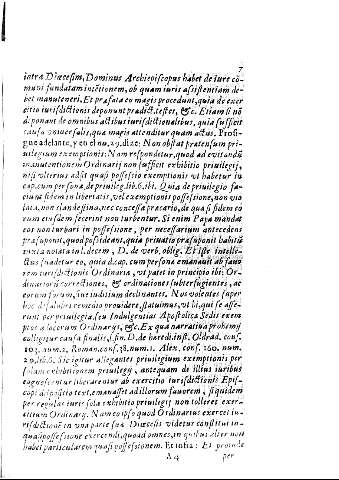 7
intra Diœcesim, Dominus Archiepiscopus habet de iure cō-
muni fundatam intētionem, ob quam iuris assistentiam de-
bet manuteneri. Et præfata eo magis procedunt, quia de exer
citio iurisdictionis deponunt prædict. testes, &c. Etiam si nō
deponant de omnibus actibus iurisdictionalibus, quia sufficit
causa vniuersalis, quæ magis attenditur quam actus. Prosi-
gue adelante, y en el nu. 29. dize: Non obstat prætensum pri-
uilegium exemptionis: Nam respondetur, quod ad euitandū
manutentionem Ordinarij non sufficit exhibitio priuilegij,
nisi vlterius adsit quasi possessio exemptionis vt habetur in
cap. cum persona, de priuileg. lib. 6. ibi. Quia de priuilegio fa-
ciant fidem in libertatis, vel exemptionis possessione, non vio
lenta, non clandestina, nec concessa precario, de qua si fidem eo
rum eisdem fecerint non turbentur. Si enim Papa mandat
eos non turbari in possessione, per necessarium antecedens
præsuponit, quod possideant, quia priuatio præsuponit habitū
iuxta nota in l. decem, D. de verb. oblig. Et iste intelle-
ctus suadetur eo, quia d. cap. cum persona emanauit ab
rem iurisdictionis Ordinaria, vt patet in principio ibi: Or-
dinariorū correctiones, & ordinationes subterfugientes, ac
eorum forum, ine iuditium declinantes. Nos volentes super
hoc de salubri remedio prouidere, statuimus, vt hi, qui se asse-
runt per priuilegia, seu Indulgentias Apostolicæ Sedis exem
ptos à locorum Ordinarijs, &c. Ex qua narratiua prohemij
colligitur causa finalis, l. fin. D. de hered. inst. Oldrad. cons.
103. num. 2. Roman. cons. 38. num. 1. Alex. cons. 160. num.
29. lib. 6. Sic igitur allegantes priuilegium exemptionis per
solam exhibitionem priuilegij, antequam de illius viribus
cognosceretur liberarentur ab exercitio iurisdictionis Epis-
copi dispositio text. emanasset ad illorum fauorem, siquidem
per regulas iuris sola exhibitio priuilegij non tolleret exer-
citium Ordinarij. Nam eo ipso quod Ordinarius exercet iu-
risdictionē in vna parte suæ Diœcesis videtur constitui in
quasi possessione exercendi, quoad omnes, in quibus alter non
habet particularem quasi possessionem. Et infra: Et proinde
A 4 per